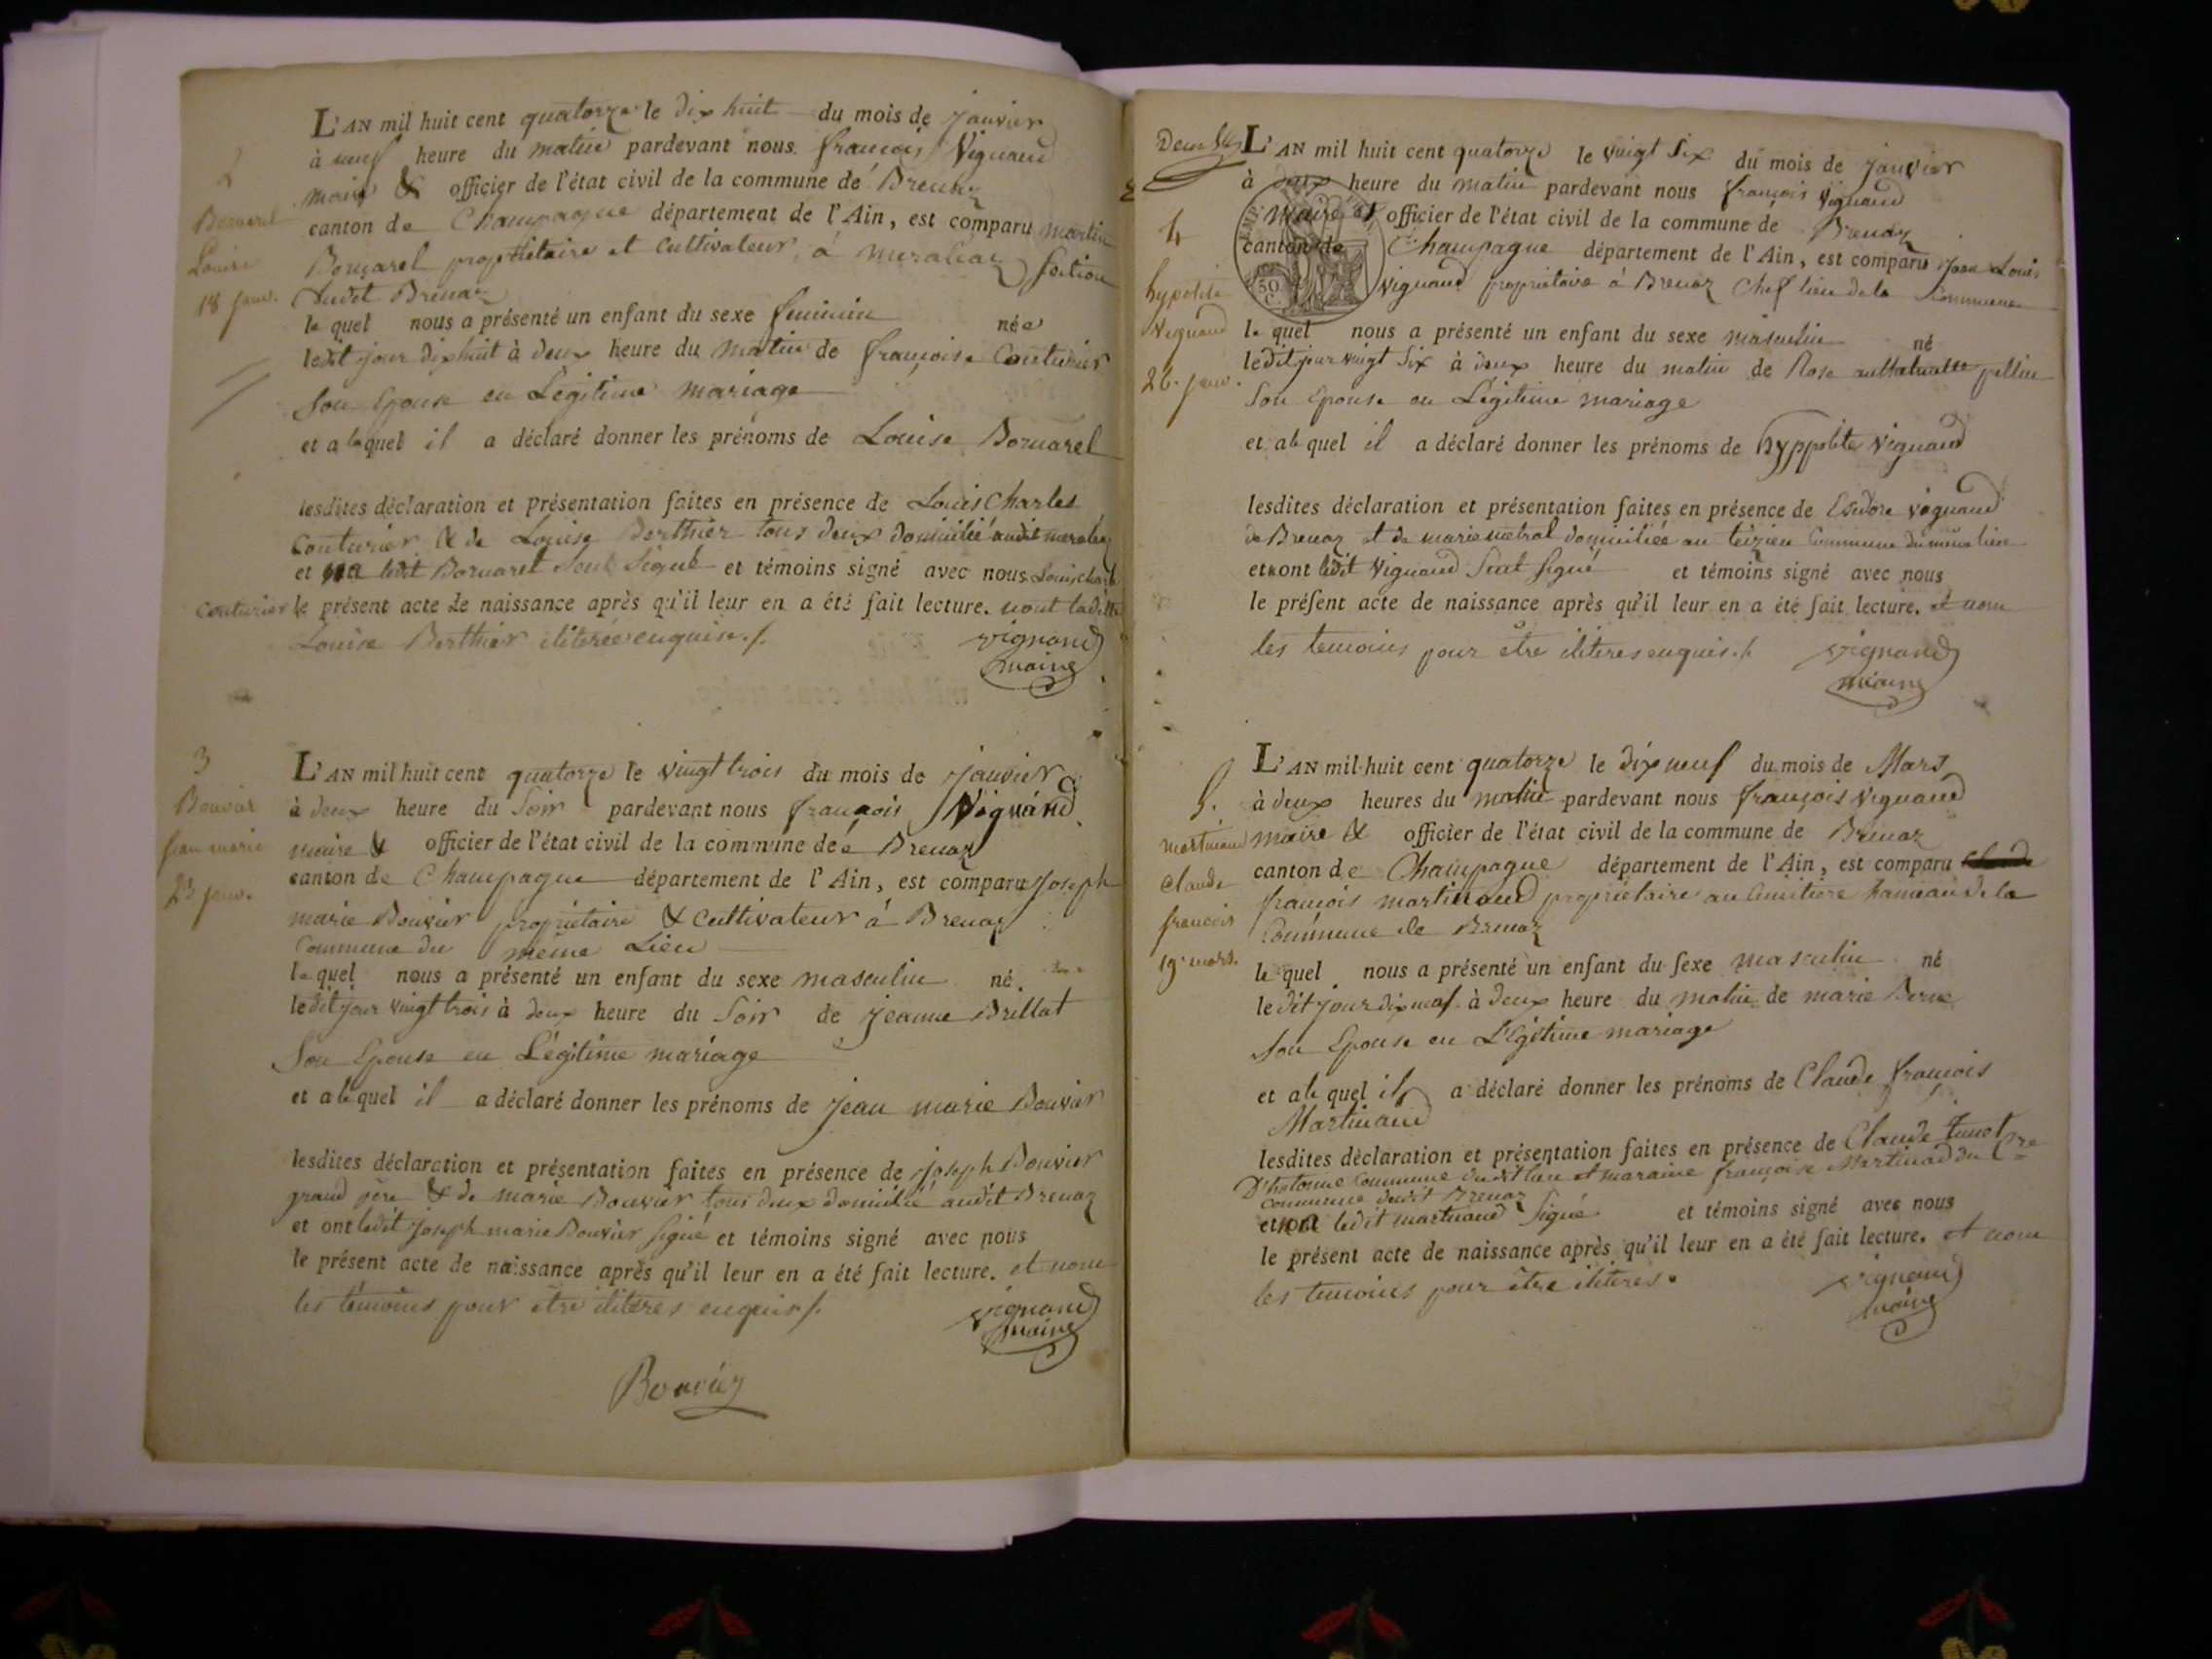 2
Bornarel
Louise
18 janv.
L'AN mil huit cent quatorze le dix huit du mois de janvier
à neuf heure du matin pardevant nous francois Vignand
maire & officier de l'état civil de la commune de Brenaz
canton de Champagne département de l'Ain, est comparu martin
Bornarel propriétaire et cultivateur à meraléaz section
dudit Brenaz
le quel nous a présenté un enfant du sexe feminin née
ledit jour dix huit à deux heure du matin de françoise Couturier
Son Epouse en Légitime mariage
et a la quel il a déclaré donner les prénoms de Louise Bornarel
lesdites déclaration et présentation faites en présence de Louis Charles
Couturier & de Louise Berthier tous deux domicilié audit meraléaz
et ledit Bornarel Seul Signé et témoins signé avec nous Louis Charle
Couturier le présent acte de naissance après qu'il leur en a été fait lecture. nont ladite
Louise Berthier iliterée enquise ./.
vignand
maire
3
Bouvier
jean marie
23 janv.
L'AN mil huit cent quatorze le vingt trois du mois de janvier
à deux heure du Soir pardevant nous françois Vignand
maire & officier de l'état civil de la commune de Brenaz
canton de Champagne département de l'Ain, est comparu Joseph
marie Bouvier propriétaire & cultivateur à Brenaz
Commune du même Lieu
le quel nous a présenté un enfant du sexe masculin né
ledit jour vingt trois à deux heure du Soir de jeanne Brillat
Son Epouse en Légitime mariage
et a le quel il a déclaré donner les prénoms de jean marie Bouvier
lesdites déclaration et présentation faites en présence de joseph Bouvier
grand père & de marie Bouvier tous deux domicilié audit Brenaz
et ont ledit joseph marie Bouvier signé et témoins signé avec nous
le présent acte de naissance après qu'il leur en a été fait lecture. et non
les témoins pour être iliteres enquis /.
vignand
maire
Bouvier
Deux
4
hypolite
Vignand
26. janv.
L'AN mil huit cent quatorze le vingt Six du mois de janvier
à deux heure du matin pardevant nous françois Vignand
maire et officier de l'état civil de la commune de Brenaz
canton de Champagne département de l'Ain, est comparu jean Louis
Vignand propriétaire à Brenaz Chef lieu de la Commune
le quel nous a présenté un enfant du sexe masculin né
ledit jour vingt Six à deux heure du matin de Rose pellin
Son Epouse en Légitime mariage
et a le quel il a déclaré donner les prénoms de hyppolite Vignand
lesdites déclaration et présentation faites en présence de Esidore vignand
de Brenaz et de marie metral domiciliée au Commune du même lieu
et ont ledit Vignand Seul signé et témoins signé avec nous
le présent acte de naissance après qu'il leur en a été fait lecture. et non
les temoins pour être iliteres enquis ./.
vignand
maire
5.
martinand
Claude
francois
19. mars.
L'AN mil huit cent quatorze le dix neuf du mois de Mars
à deux heures du matin pardevant nous françois Vignand
maire & officier de l'état civil de la commune de Brenaz
canton de Champagne département de l'Ain, est comparu
francois martinand propriétaire au hameau de la
Commune de Brenaz
le quel nous a présenté un enfant du sexe masculin né
ledit jour dix neuf à deux heure du matin de marie Berne
Son Epouse en Légitime mariage
et a le quel il a déclaré donner les prénoms de Claude francois
Martinand
lesdites déclaration et présentation faites en présence de Claude
D'hotonne Commune dudit lieu et maraine françoise Martinad du
commune dudit Brenaz
et ledit martinand Signé et témoins signé avec nous
le présent acte de naissance après qu'il leur en a été fait lecture. et non
les temoins pour être iliteres.
vignand
maire